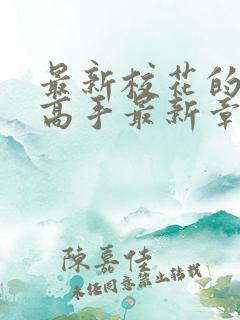 最新校花的
高手最新章
陳嘉佳
未经同意禁止转载